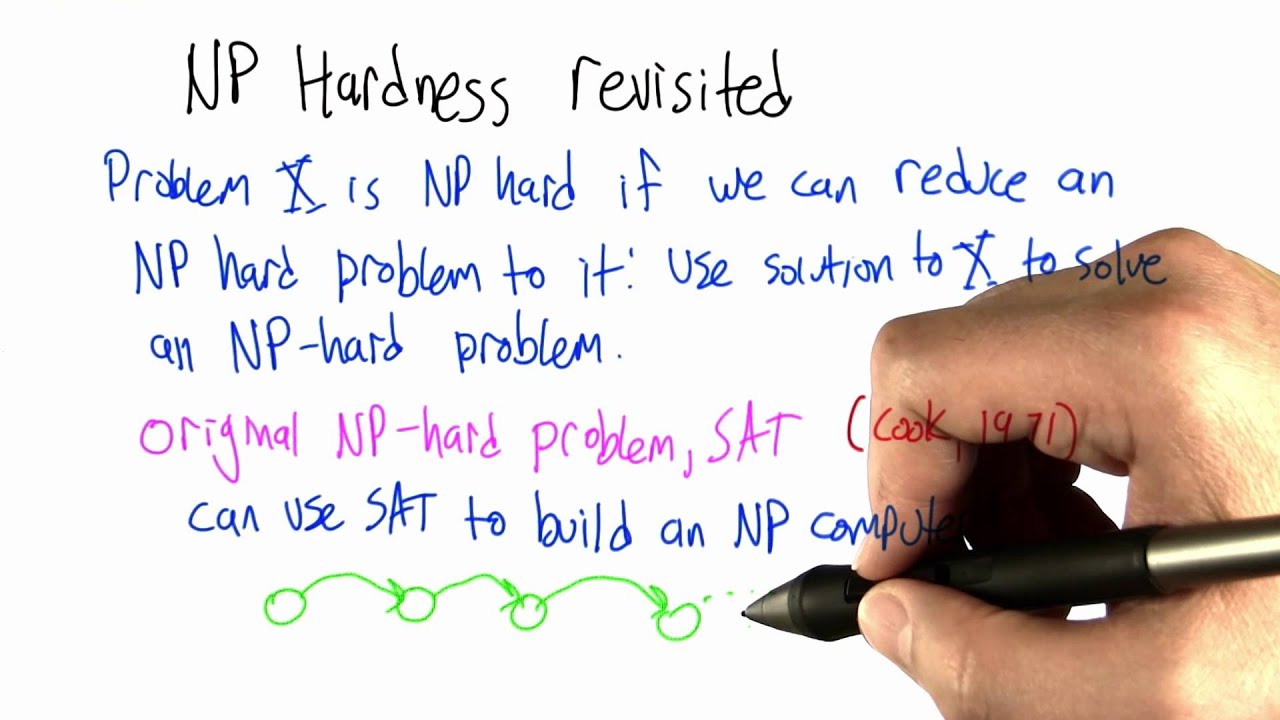 NP Hardness revisited
Problem X is NP hard if we can reduce an
NP hard problem to it: Use solution to X to solve
an NP-hard problem.
Original NP-hard problem, SAT (Cook, 1971)
can use SAT to build an NP computer!